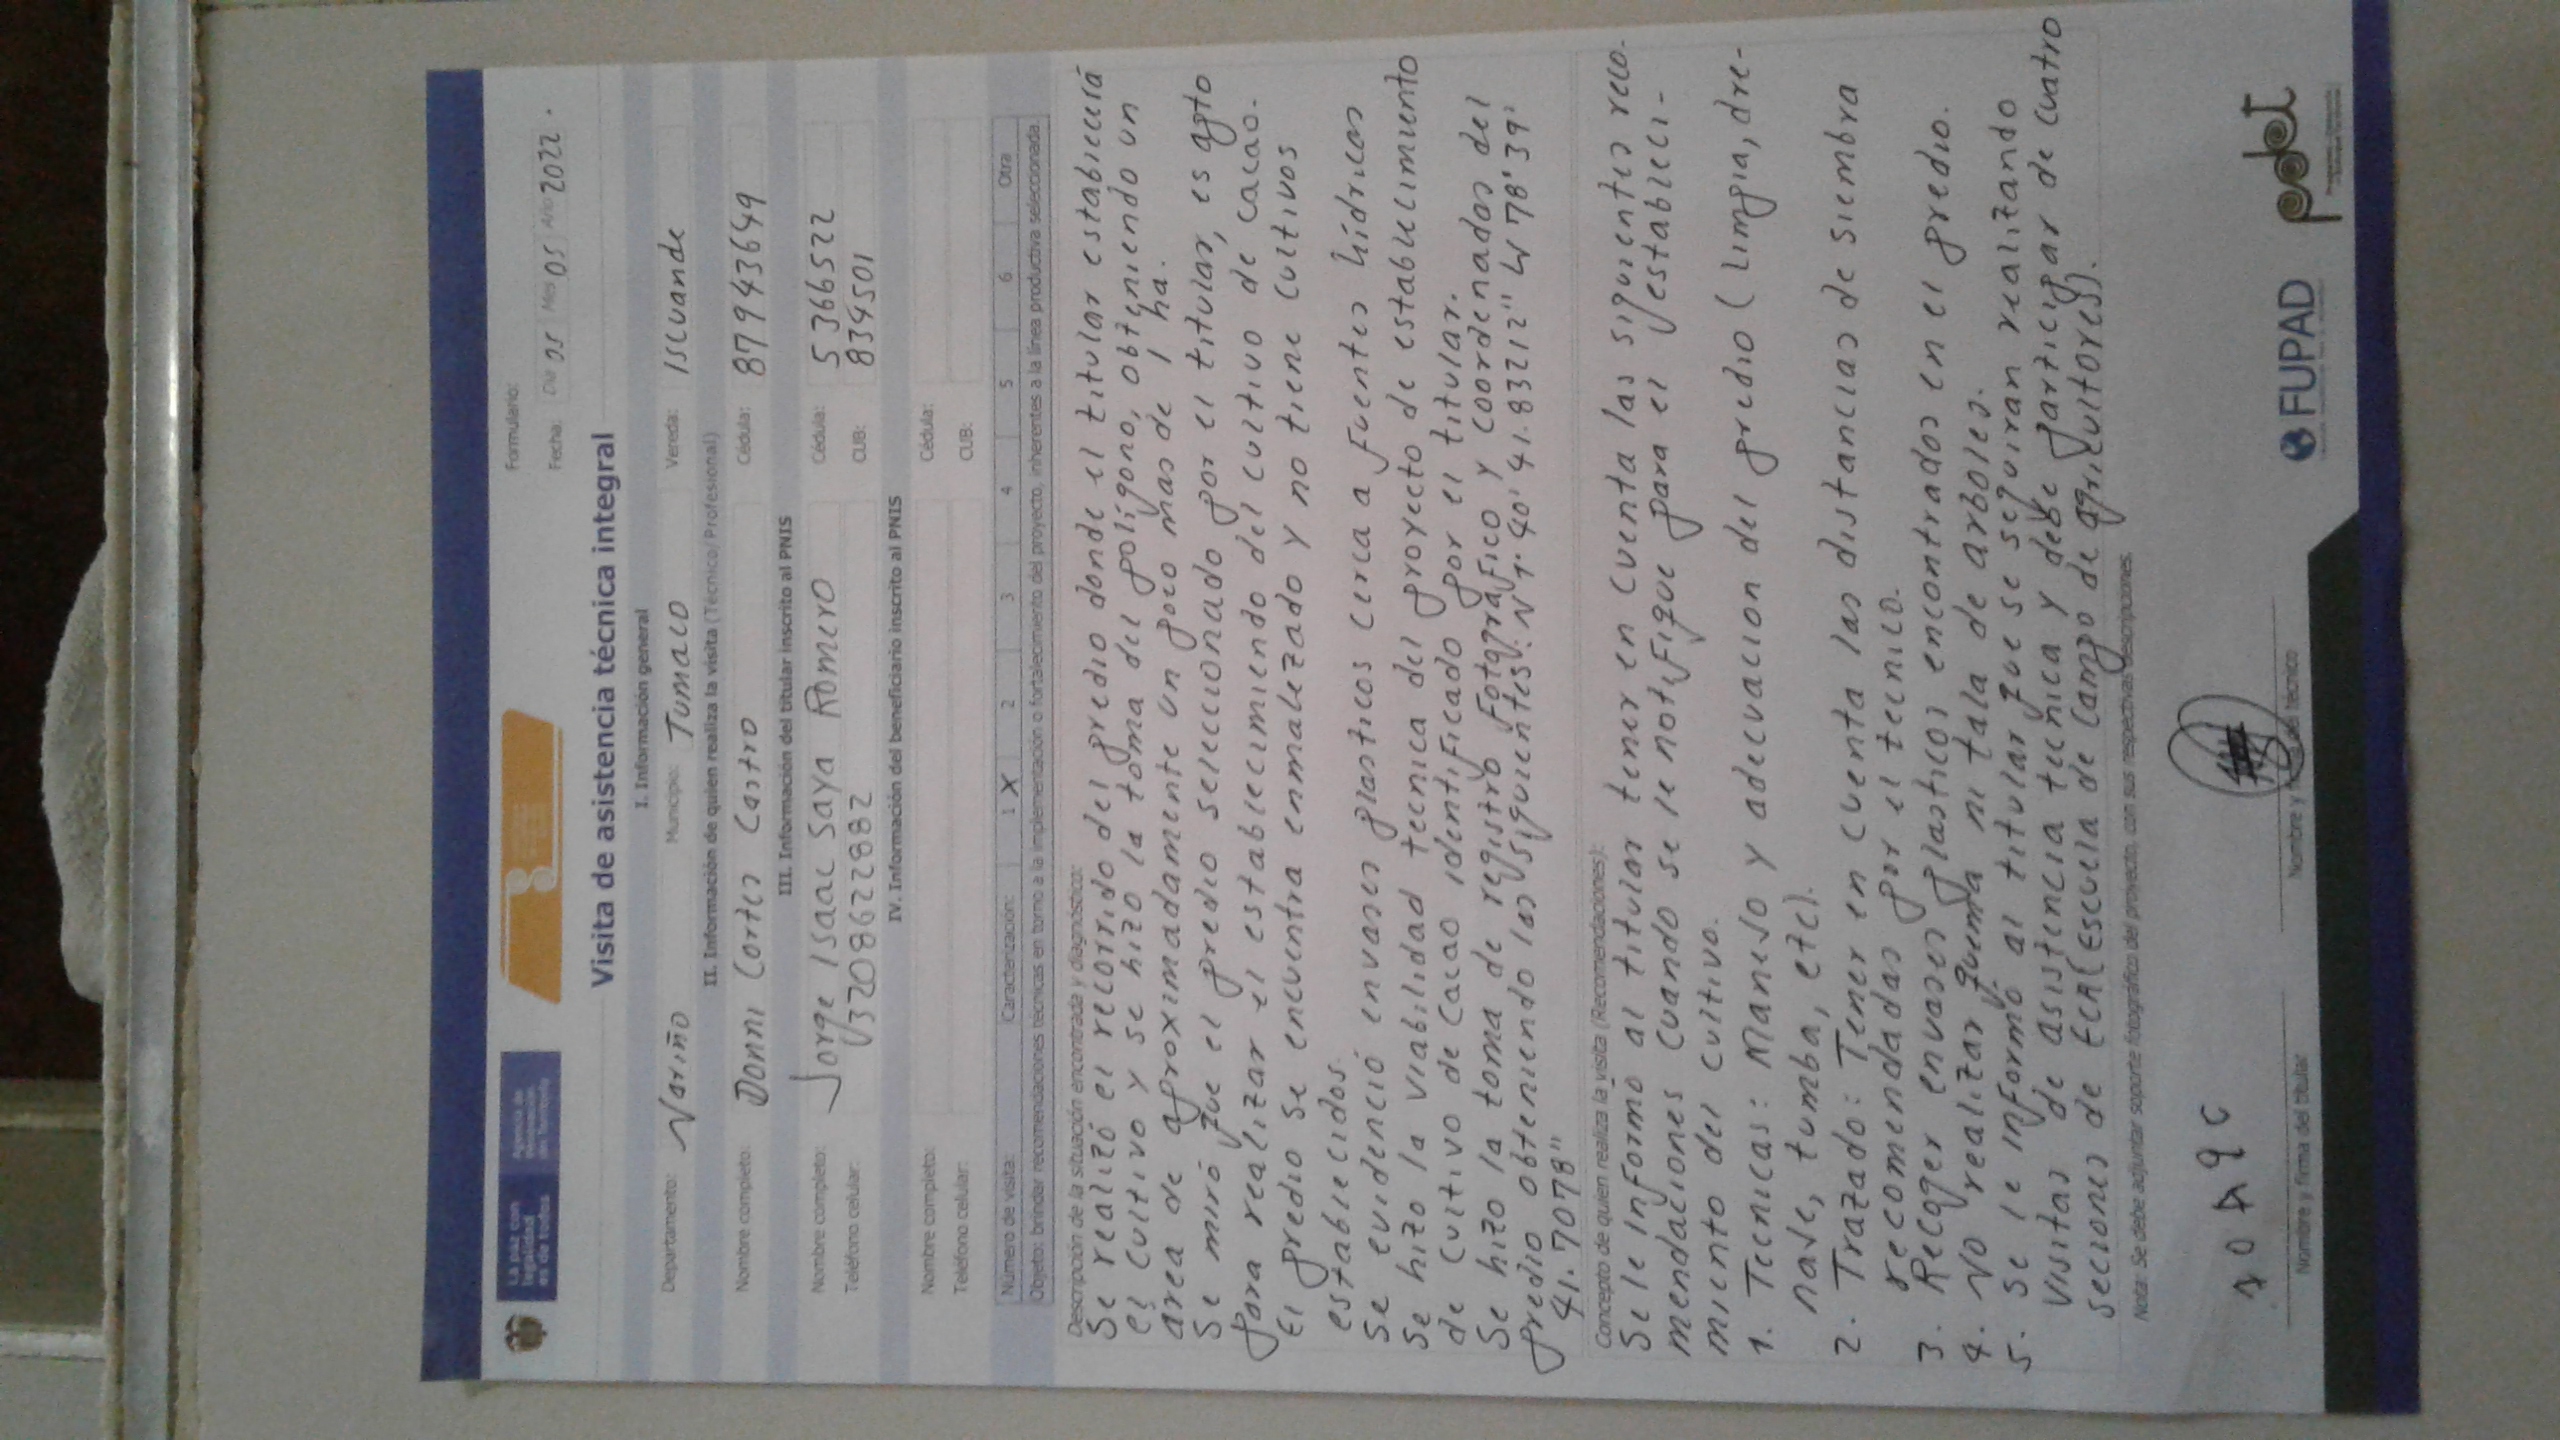 La paz con
legalidad
es de todos
Agencia de
Renovación
del Territorio
Formulario:
Fecha: Día 05 Mes 05 Año 2022.
Visita de asistencia técnica integral
I. Información general
Departamento: Nariño Municipio: Tumaco Vereda: Iscuande
II. Información de quien realiza la visita (Técnico/Profesional)
Nombre completo: Donni Cortes Castro Cédula: 87943649
III. Información del titular inscrito al PNIS
Nombre completo: Jorge Isaac Saya Romero Cédula: 5366522
Teléfono celular: 3208622882 CUB: 834501
IV. Información del beneficiario inscrito al PNIS
Nombre completo: Cédula:
Teléfono celular: CUB:
Número de visita: Caracterización: 1 X 2 3 4 5 6 Otra
Objeto: brindar recomendaciones técnicas en torno a la implementación o fortalecimiento del proyecto, inherentes a la línea productiva seleccionada.
Descripción de la situación encontrada y diagnóstico:
Se realizó el recorrido del predio donde el titular establecerá
el cultivo y se hizo la toma del polígono, obteniendo un
area de aproximadamente un poco mas de 1 ha.
Se miró que el predio seleccionado por el titular, es apto
para realizar el establecimiendo del cultivo de cacao.
El predio se encuentra enmalezado y no tiene cultivos
establecidos.
Se evidenció envases plasticos cerca a fuentes hídricas
Se hizo la viabilidad tecnica del proyecto de establecimiento
de cultivo de cacao identificado por el titular.
Se hizo la toma de registro fotografico y coordenadas del
predio obteniendo las siguientes: N 1° 40' 41.83212" W 78° 39'
41.7078"
Concepto de quien realiza la visita (Recomendaciones):
Se le informo al titular tener en cuenta las siguientes reco-
mendaciones cuando se le notifique para el estableci-
miento del cultivo.
1. Tecnicas: Manejo y adecuacion del predio (limpia, dre-
naje, tumba, etc).
2. Trazado: Tener en cuenta las distancias de siembra
recomendadas por el tecnico.
3. Recoger envases plasticos encontrados en el predio.
4. No realizar quema ni tala de arboles.
5. Se le informó al titular que se seguiran realizando
visitas de asistencia tecnica y debe participar de cuatro
secciones de ECA (Escuela de Campo de agricultores).
Nota: Se debe adjuntar soporte fotográfico del proyecto, con sus respectivas descripciones.
Nombre y firma del titular
Nombre y firma del técnico
FUPAD
pdet